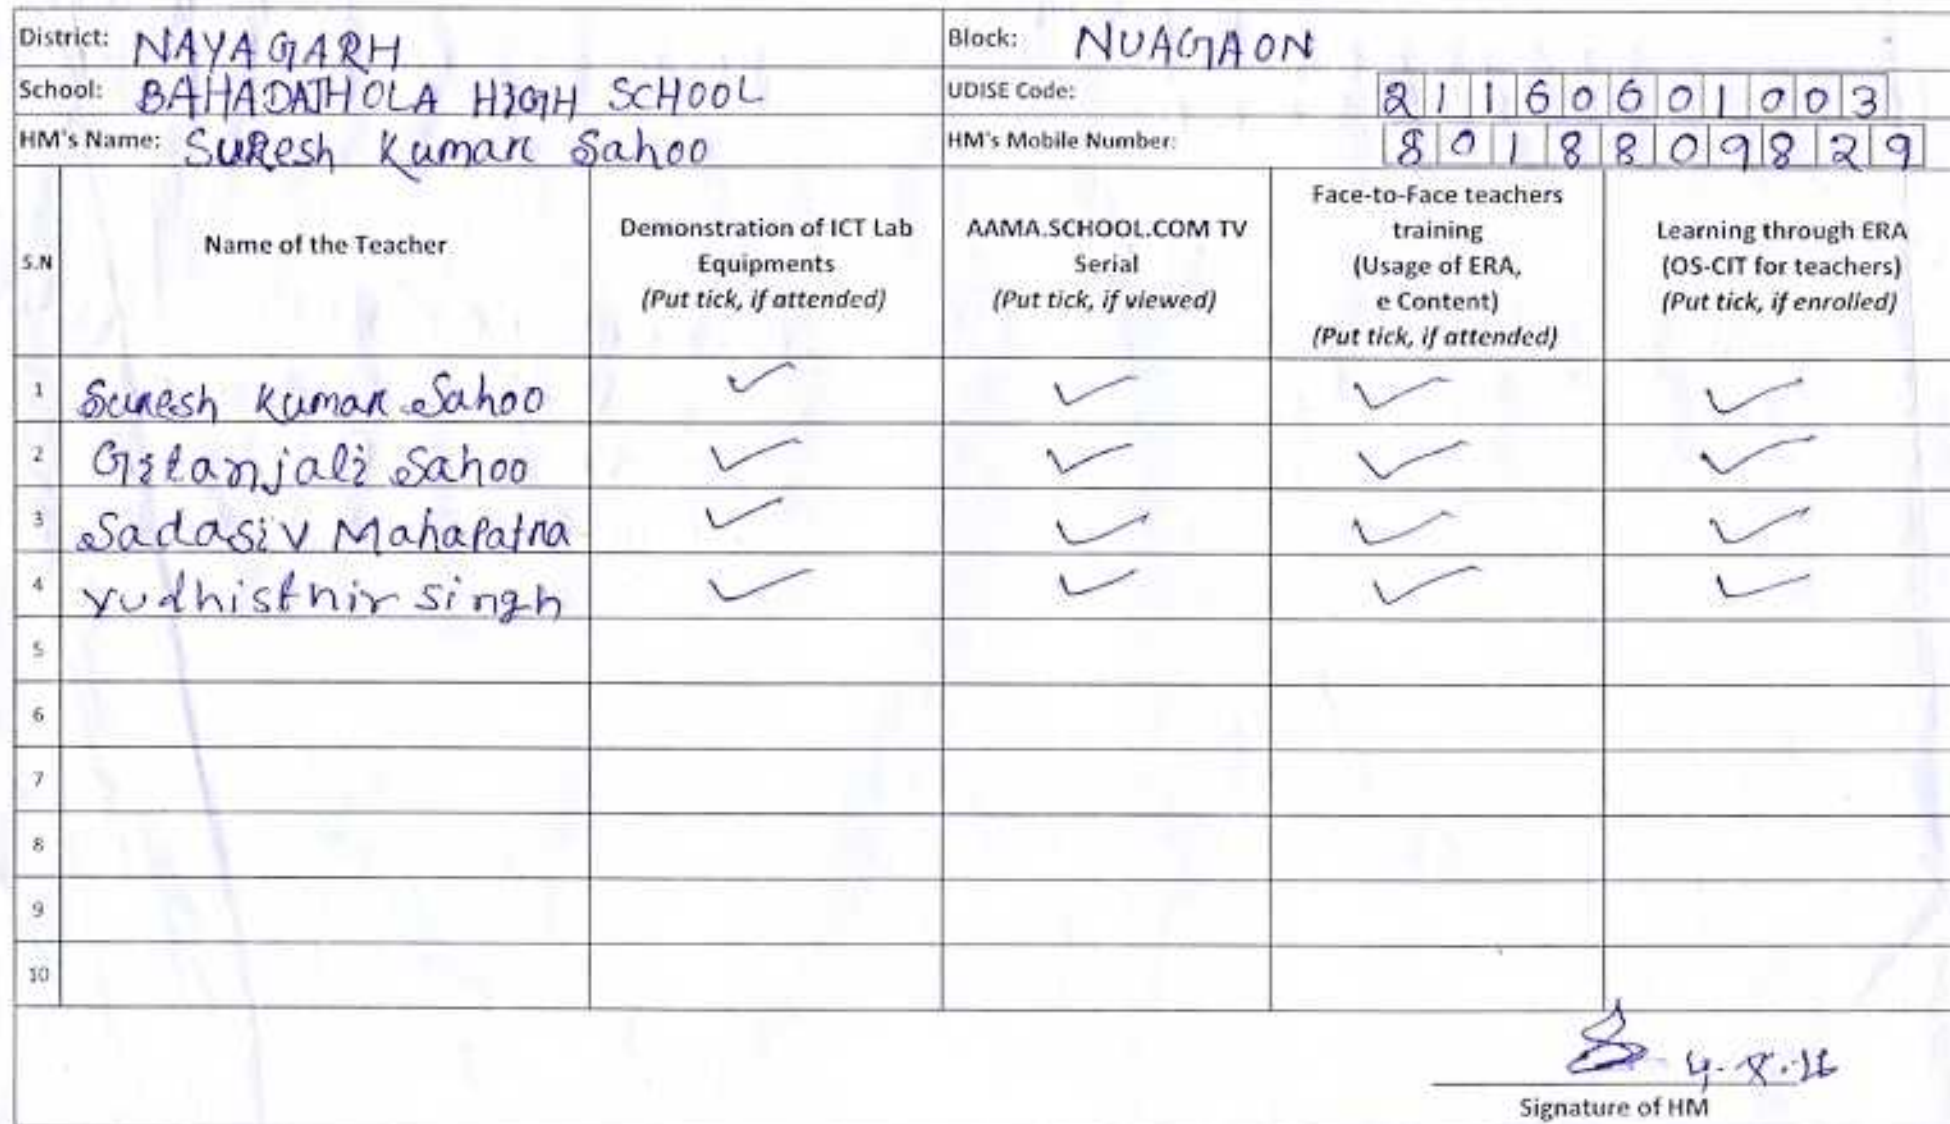 District: NAYAGARH Block: NUAGAON
School: BAHADATHOLA HIGH SCHOOL UDISE Code: 21160601003
HM's Name: Suresh Kumar Sahoo HM's Mobile Number: 8018809829
S.N Name of the Teacher Demonstration of ICT Lab Equipments (Put tick, if attended) AAMA.SCHOOL.COM TV Serial (Put tick, if viewed) Face-to-Face teachers training (Usage of ERA, e Content) (Put tick, if attended) Learning through ERA (OS-CIT for teachers) (Put tick, if enrolled)
1 Suresh Kumar Sahoo ✓ ✓ ✓ ✓
2 Gitanjali Sahoo ✓ ✓ ✓ ✓
3 Sadasiv Mahapatra ✓ ✓ ✓ ✓
4 Yudhisthir Singh ✓ ✓ ✓ ✓
5
6
7
8
9
10
4.8.
Signature of HM